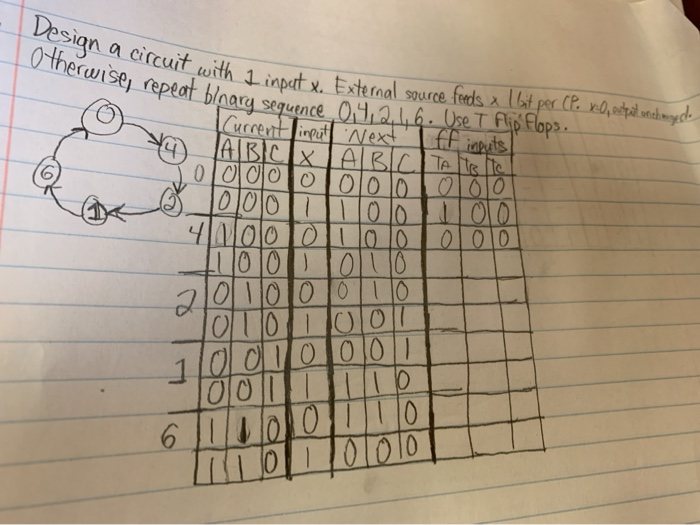 Design a circuit with 1 input x. External source feeds x 1 bit per CP. x=0, output unchanged.
Otherwise, repeat binary sequence 0,4,2,1,6. Use T flip flops.
0 4 2 1 6
Current input Next ff inputs
A B C X A B C TA TB TC
0 0 0 0 0 0 0 0 0 0 0
0 0 0 1 1 0 0 1 0 0
4 1 0 0 0 1 0 0 0 0 0
1 0 0 1 0 1 0
2 0 1 0 0 0 1 0
0 1 0 1 0 0 1
1 0 0 1 0 0 0 1
0 0 1 1 1 1 0
6 1 1 0 0 1 1 0
1 1 0 1 0 0 0